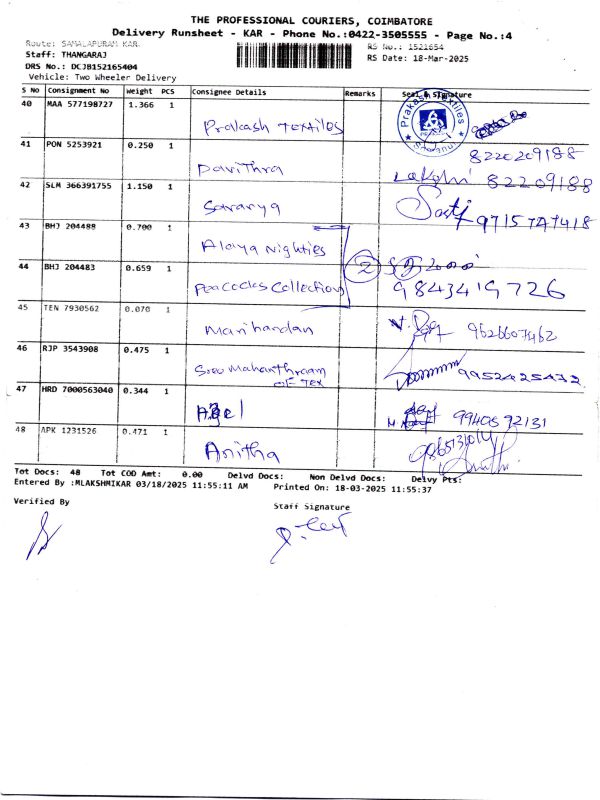 THE PROFESSIONAL COURIERS, COIMBATORE
Delivery Runsheet - KAR - Phone No.:0422-3505555 - Page No.:4
Route: SAMALAPURAM KAR. RS No.: 1521654
Staff: THANGARAJ RS Date: 18-Mar-2025
DRS No.: DCJB152165404
Vehicle: Two Wheeler Delivery
S No Consignment No Weight PCS Consignee Details Remarks Seal & Signature
40 MAA 577198727 1.366 1 Prakash Textiles Prakash Textiles
41 PON 5253921 0.250 1 Pavithra 8220209188
42 SLM 366391755 1.150 1 Lakshi 82209188
43 BHJ 204488 0.700 1 Alaya Nighties
44 BHJ 204483 0.659 1 Peacocks Collection 2 9843419726
45 TEN 7930562 0.070 1 Manihandan
46 RJP 3543908 0.475 1 Sree Mahanthraam
OF Tex
47 HRD 7000563040 0.344 1
48 APK 1231526 0.471 1 Anitha
Tot Docs: 48 Tot COD Amt: 0.00 Delvd Docs: Non Delvd Docs: Delvy Pts:
Entered By :MLAKSHMIKAR 03/18/2025 11:55:11 AM Printed On: 18-03-2025 11:55:37
Verified By Staff Signature